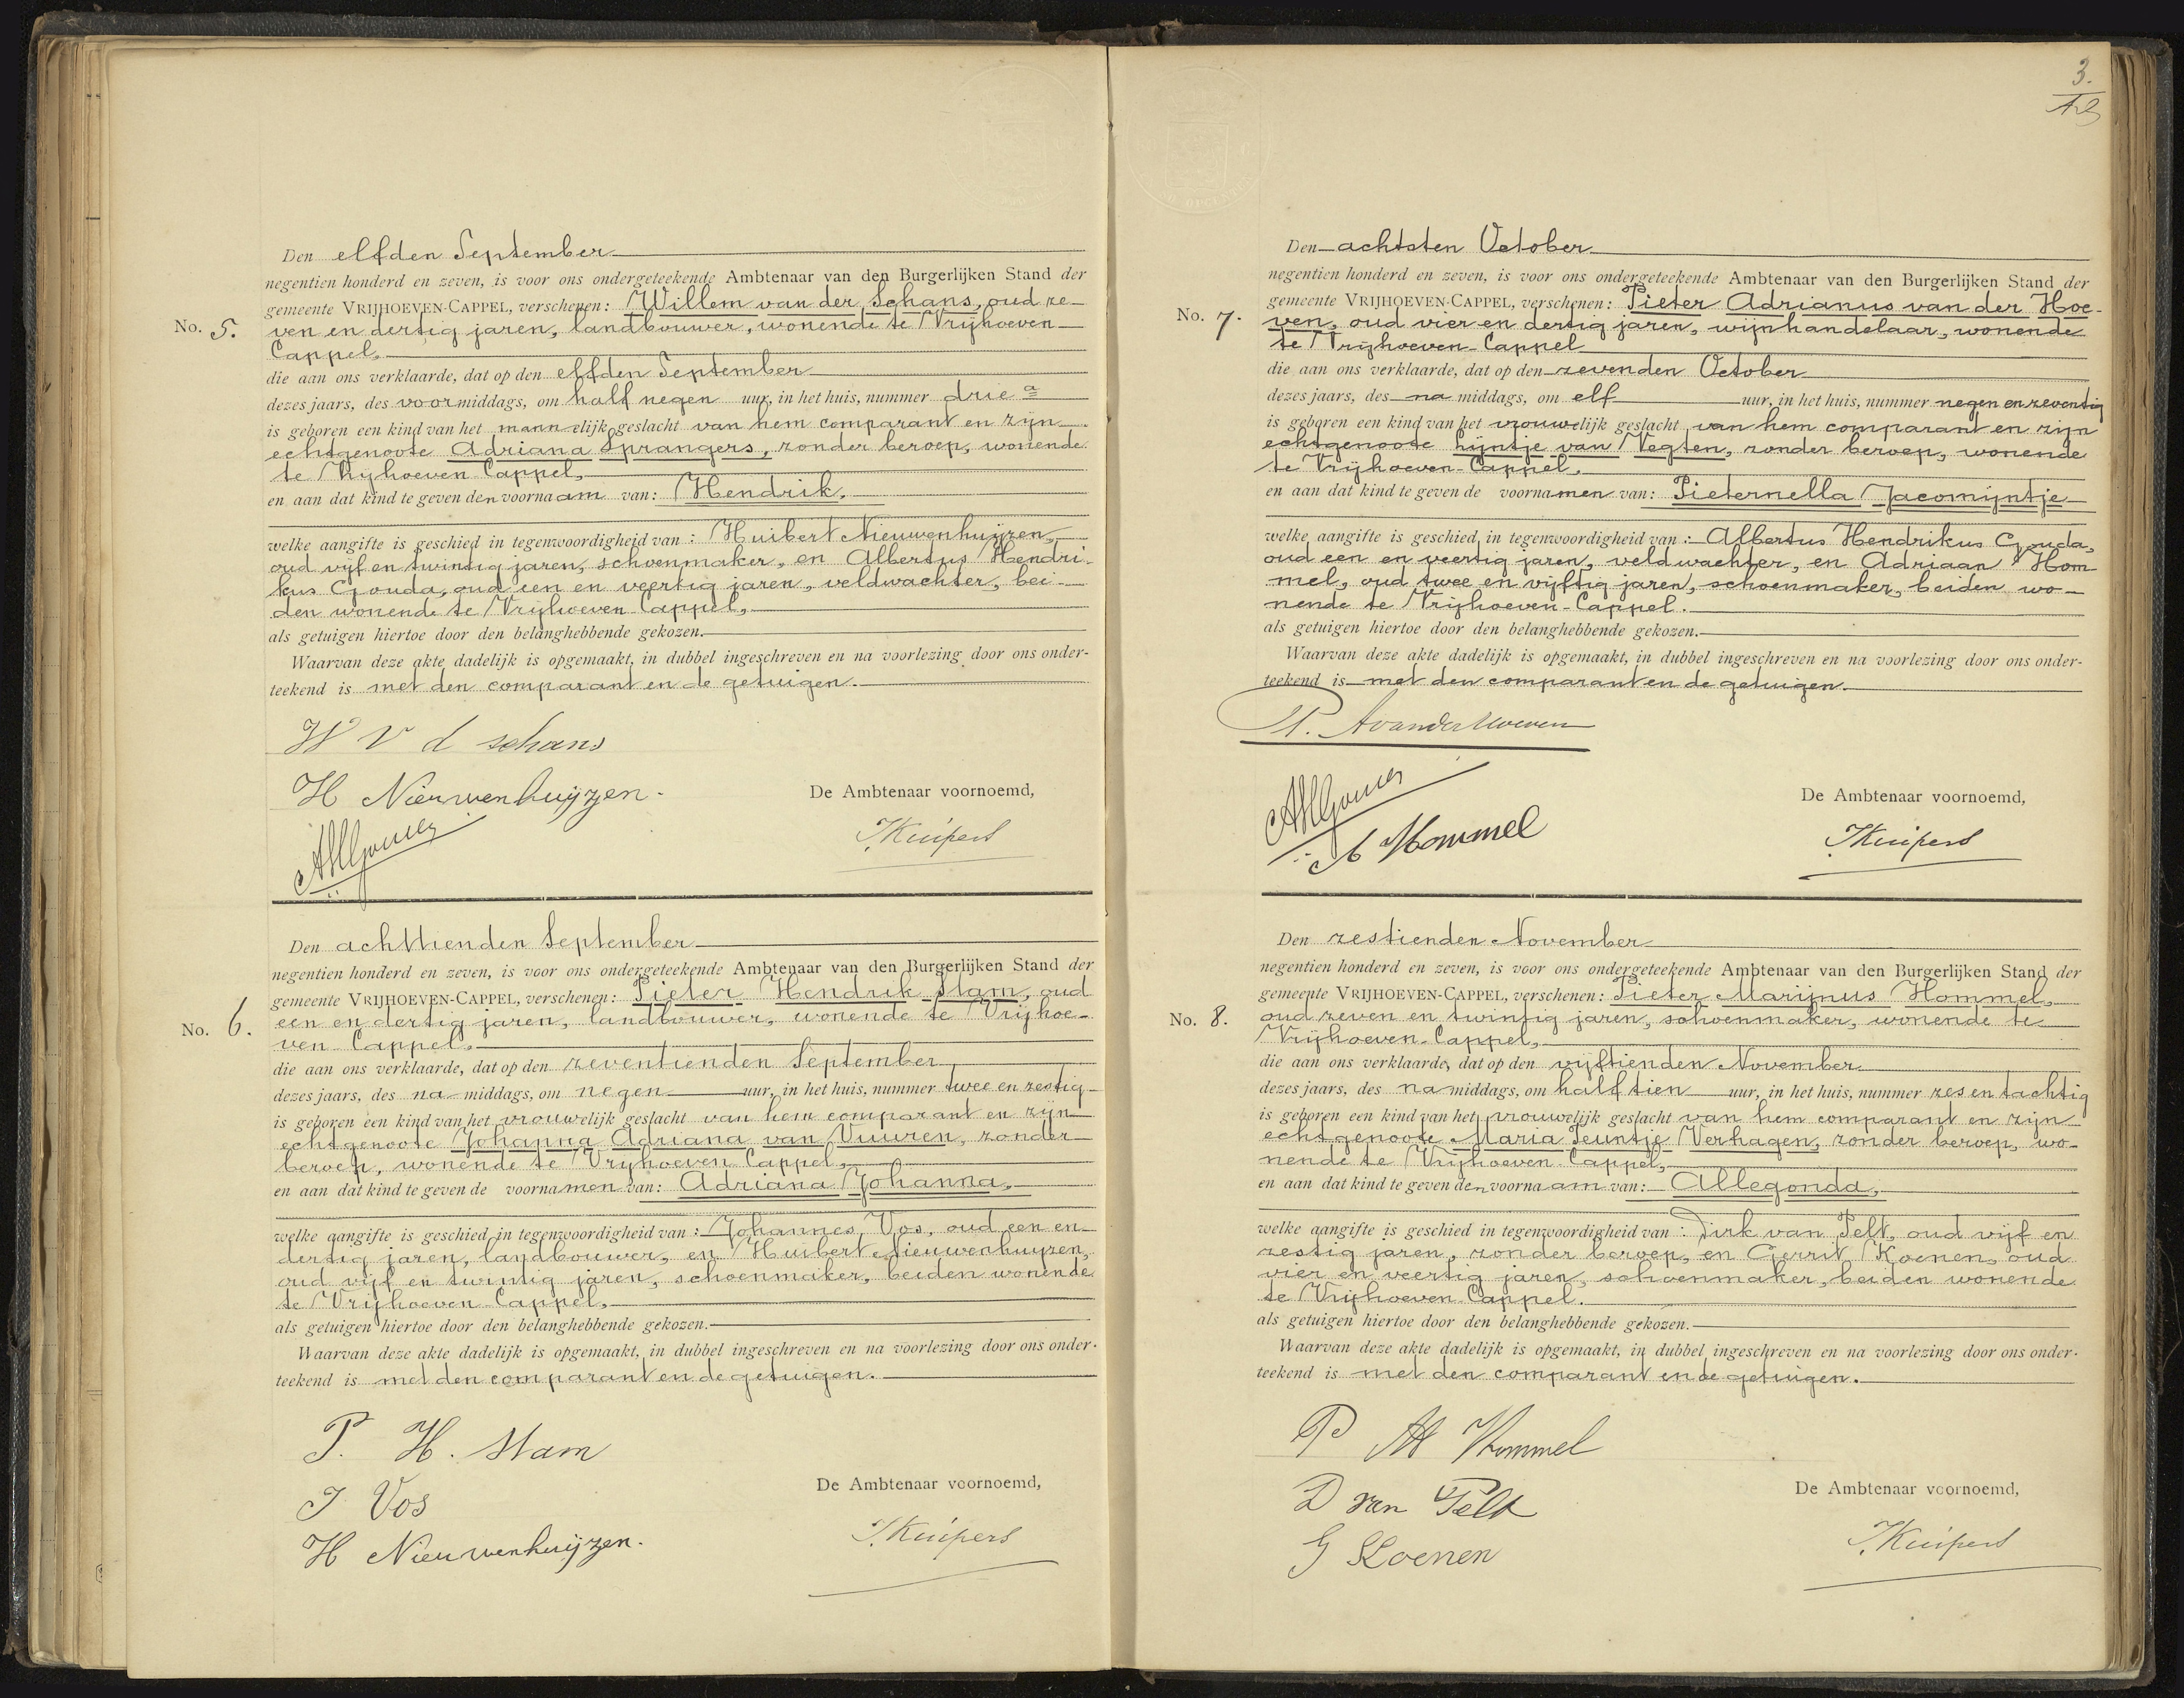 Den elfden September
negentien honderd en zeven, is voor ons ondergeteekende Ambtenaar van den Burgerlijken Stand der
gemeente VRIJHOEVEN-CAPPEL, verschenen: Willem van der Schans, oud ze-
No. 5. ven en dertig jaren, landbouwer, wonende te Vrijhoeven
Cappel,
die aan ons verklaarde, dat op den elfden September
dezes jaars, des voormiddags, om half negen uur, in het huis, nummer drie a
is geboren een kind van het mannelijk geslacht van hem comparant en zijn
echtgenoote Adriana Sprangers, zonder beroep, wonende
te Vrijhoeven Cappel,
en aan dat kind te geven den voornaam van: Hendrik,
welke aangifte is geschied in tegenwoordigheid van: Huibert Nieuwenhuijzen,
oud vijf en twintig jaren, schoenmaker, en Albertus Hendri-
kus Gouda, oud een en veertig jaren, veldwachter, bei-
den wonende te Vrijhoeven Cappel,
als getuigen hiertoe door den belanghebbende gekozen.
Waarvan deze akte dadelijk is opgemaakt, in dubbel ingeschreven en na voorlezing door ons onder-
teekend is met den comparant en de getuigen.
W V d schans
H Nieuwenhuijzen.
De Ambtenaar voornoemd,
AHGouda
JKuipers
Den achttienden September
negentien honderd en zeven, is voor ons ondergeteekende Ambtenaar van den Burgerlijken Stand der
gemeente VRIJHOEVEN-CAPPEL, verschenen: Pieter Hendrik Stam, oud
No. 6. een en dertig jaren, landbouwer, wonende te Vrijhoe-
ven Cappel,
die aan ons verklaarde, dat op den zeventienden September
dezes jaars, des na middags, om negen uur, in het huis, nummer twee en zestig
is geboren een kind van het vrouwelijk geslacht van hem comparant en zijn
echtgenoote Johanna Adriana van Vuuren, zonder
beroep, wonende te Vrijhoeven Cappel,
en aan dat kind te geven de voornamen van: Adriana Johanna,
welke aangifte is geschied in tegenwoordigheid van: Johannes Vos, oud een en
dertig jaren, landbouwer, en Huibert Nieuwenhuijzen,
oud vijf en twintig jaren, schoenmaker, beiden wonende
te Vrijhoeven-Cappel,
als getuigen hiertoe door den belanghebbende gekozen.
Waarvan deze akte dadelijk is opgemaakt, in dubbel ingeschreven en na voorlezing door ons onder-
teekend is met den comparant en de getuigen.
P. H. Stam
De Ambtenaar voornoemd,
J Vos
H Nieuwenhuijzen.
JKuipers
3.
Den achtsten October
negentien honderd en zeven, is voor ons ondergeteekende Ambtenaar van den Burgerlijken Stand der
gemeente VRIJHOEVEN-CAPPEL, verschenen: Pieter Adrianus van der Hoe-
No. 7. ven, oud vier en dertig jaren, wijnhandelaar, wonende
te Vrijhoeven-Cappel
die aan ons verklaarde, dat op den zevenden October
dezes jaars, des na middags, om elf uur, in het huis, nummer negen en zeventig
is geboren een kind van het vrouwelijk geslacht van hem comparant en zijn
echtgenoote Lijntje van Vegten, zonder beroep, wonende
te Vrijhoeven-Cappel,
en aan dat kind te geven de voornamen van: Pieternella Jacomijntje
welke aangifte is geschied in tegenwoordigheid van: Albertus Hendrikus Gouda,
oud een en veertig jaren, veldwachter, en Adriaan Hom
mel, oud twee en vijftig jaren, schoenmaker, beiden wo-
nende te Vrijhoeven-Cappel.
als getuigen hiertoe door den belanghebbende gekozen.
Waarvan deze akte dadelijk is opgemaakt, in dubbel ingeschreven en na voorlezing door ons onder-
teekend is met den comparant en de getuigen.
P. A van der Hoeven
AHGouda
De Ambtenaar voornoemd,
A Hommel
JKuipers
Den zestienden November
negentien honderd en zeven, is voor ons ondergeteekende Ambtenaar van den Burgerlijken Stand der
gemeente VRIJHOEVEN-CAPPEL, verschenen: Pieter Marijnus Hommel,
No. 8. oud zeven en twintig jaren, schoenmaker, wonende te
Vrijhoeven-Cappel,
die aan ons verklaarde, dat op den vijftienden November
dezes jaars, des na middags, om half tien uur, in het huis, nummer zes en tachtig
is geboren een kind van het vrouwelijk geslacht van hem comparant en zijn
echtgenoote Maria Teuntje Verhagen, zonder beroep, wo-
nende te Vrijhoeven-Cappel,
en aan dat kind te geven den voornaam van: Allegonda,
welke aangifte is geschied in tegenwoordigheid van: Dirk van Pelt, oud vijf en
zestig jaren, zonder beroep, en Gerrit Koenen, oud
vier en veertig jaren, schoenmaker, beiden wonende
te Vrijhoeven-Cappel.
als getuigen hiertoe door den belanghebbende gekozen.
Waarvan deze akte dadelijk is opgemaakt, in dubbel ingeschreven en na voorlezing door ons onder-
teekend is met den comparant en de getuigen.
P M Hommel
De Ambtenaar voornoemd,
D van Pelt
G Koenen
JKuipers